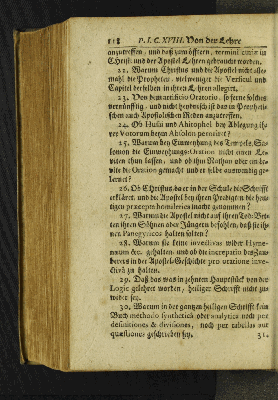 118 P. I. C. XVIII. Von der Lehre
anzutreffen, und daß zum öfftern, termini civiæ in
Christi und der Apostel Lehren gebraucht worden.
21. Warum Christus und die Apostel nicht alle-
mahl die Propheten, vielweniger die Verßcul und
Capitel derselben in ihren Lehren allegirt.
23. Ob der artificio Oratorio, so ferne solches
vernünfftig, und nicht heydnisch ist, das in Prophet-
schen auch Apostolischen Reden anzutreffen.
24. Ob Husai und Ahitophel bey Ablegung ih-
rer Votorum gegen Absolon peroriret?
25. Warum bey Einweyhung des Tempels, Sa-
lomon die Einweyhungs-Oration nicht einen Le-
viten thun lassen, und ob ihm Nathan oder ein
die Oration gemacht und er selbe auswendig ge-
lernet?
26. Ob Christus, da er in der Schule die Schrifft
erkläret, und die Apostel bey ihren Predigten die heu-
tigen præcepta homiletica in acht genommen?
27. Warum die Apostel nicht auf ihren Tod-Bet-
ten ihren Söhnen oder Jüngern befohlen, daß sie ih-
nen Panegyricos halten solten?
28. Warum sie keine invectivas wider Hyme-
næum &c. gehalten, und ob die increpatio des Zau-
berers in der Apostel-Geschichte pro oratione inve-
ctiva zu halten.
29. Daß das was in zehnten Hauptstück von der
Logic gelehret worden, heiliger Schrifft nicht zu-
wider sey.
30. Warum in der gantzen heiligen Schrifft kein
Buch methodo synthetica oder analytica noch per
definitiones & divisiones, noch per tabellas aut
quæstiones geschrieben sey.
31.